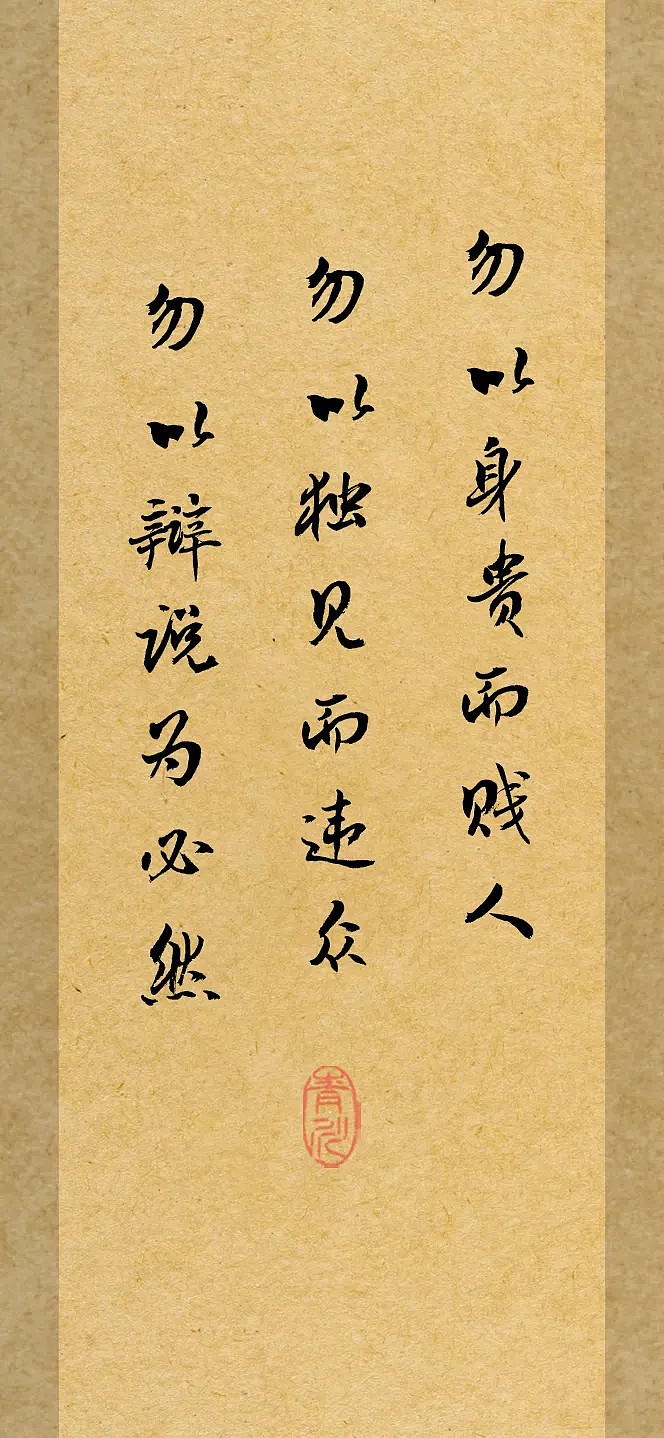 勿以身贵而贱人
勿以独见而违众
勿以辩说为必然